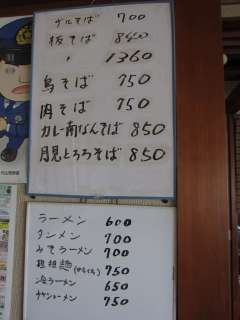 ザルそば 700
板そば 840
〃 1360
鳥そば 750
肉そば 750
カレー南なんそば 850
月見とろろそば 850
ラーメン 600
タンメン 700
みそラーメン 700
担担麺 750
冷ラーメン 650
チャーシューメン 750